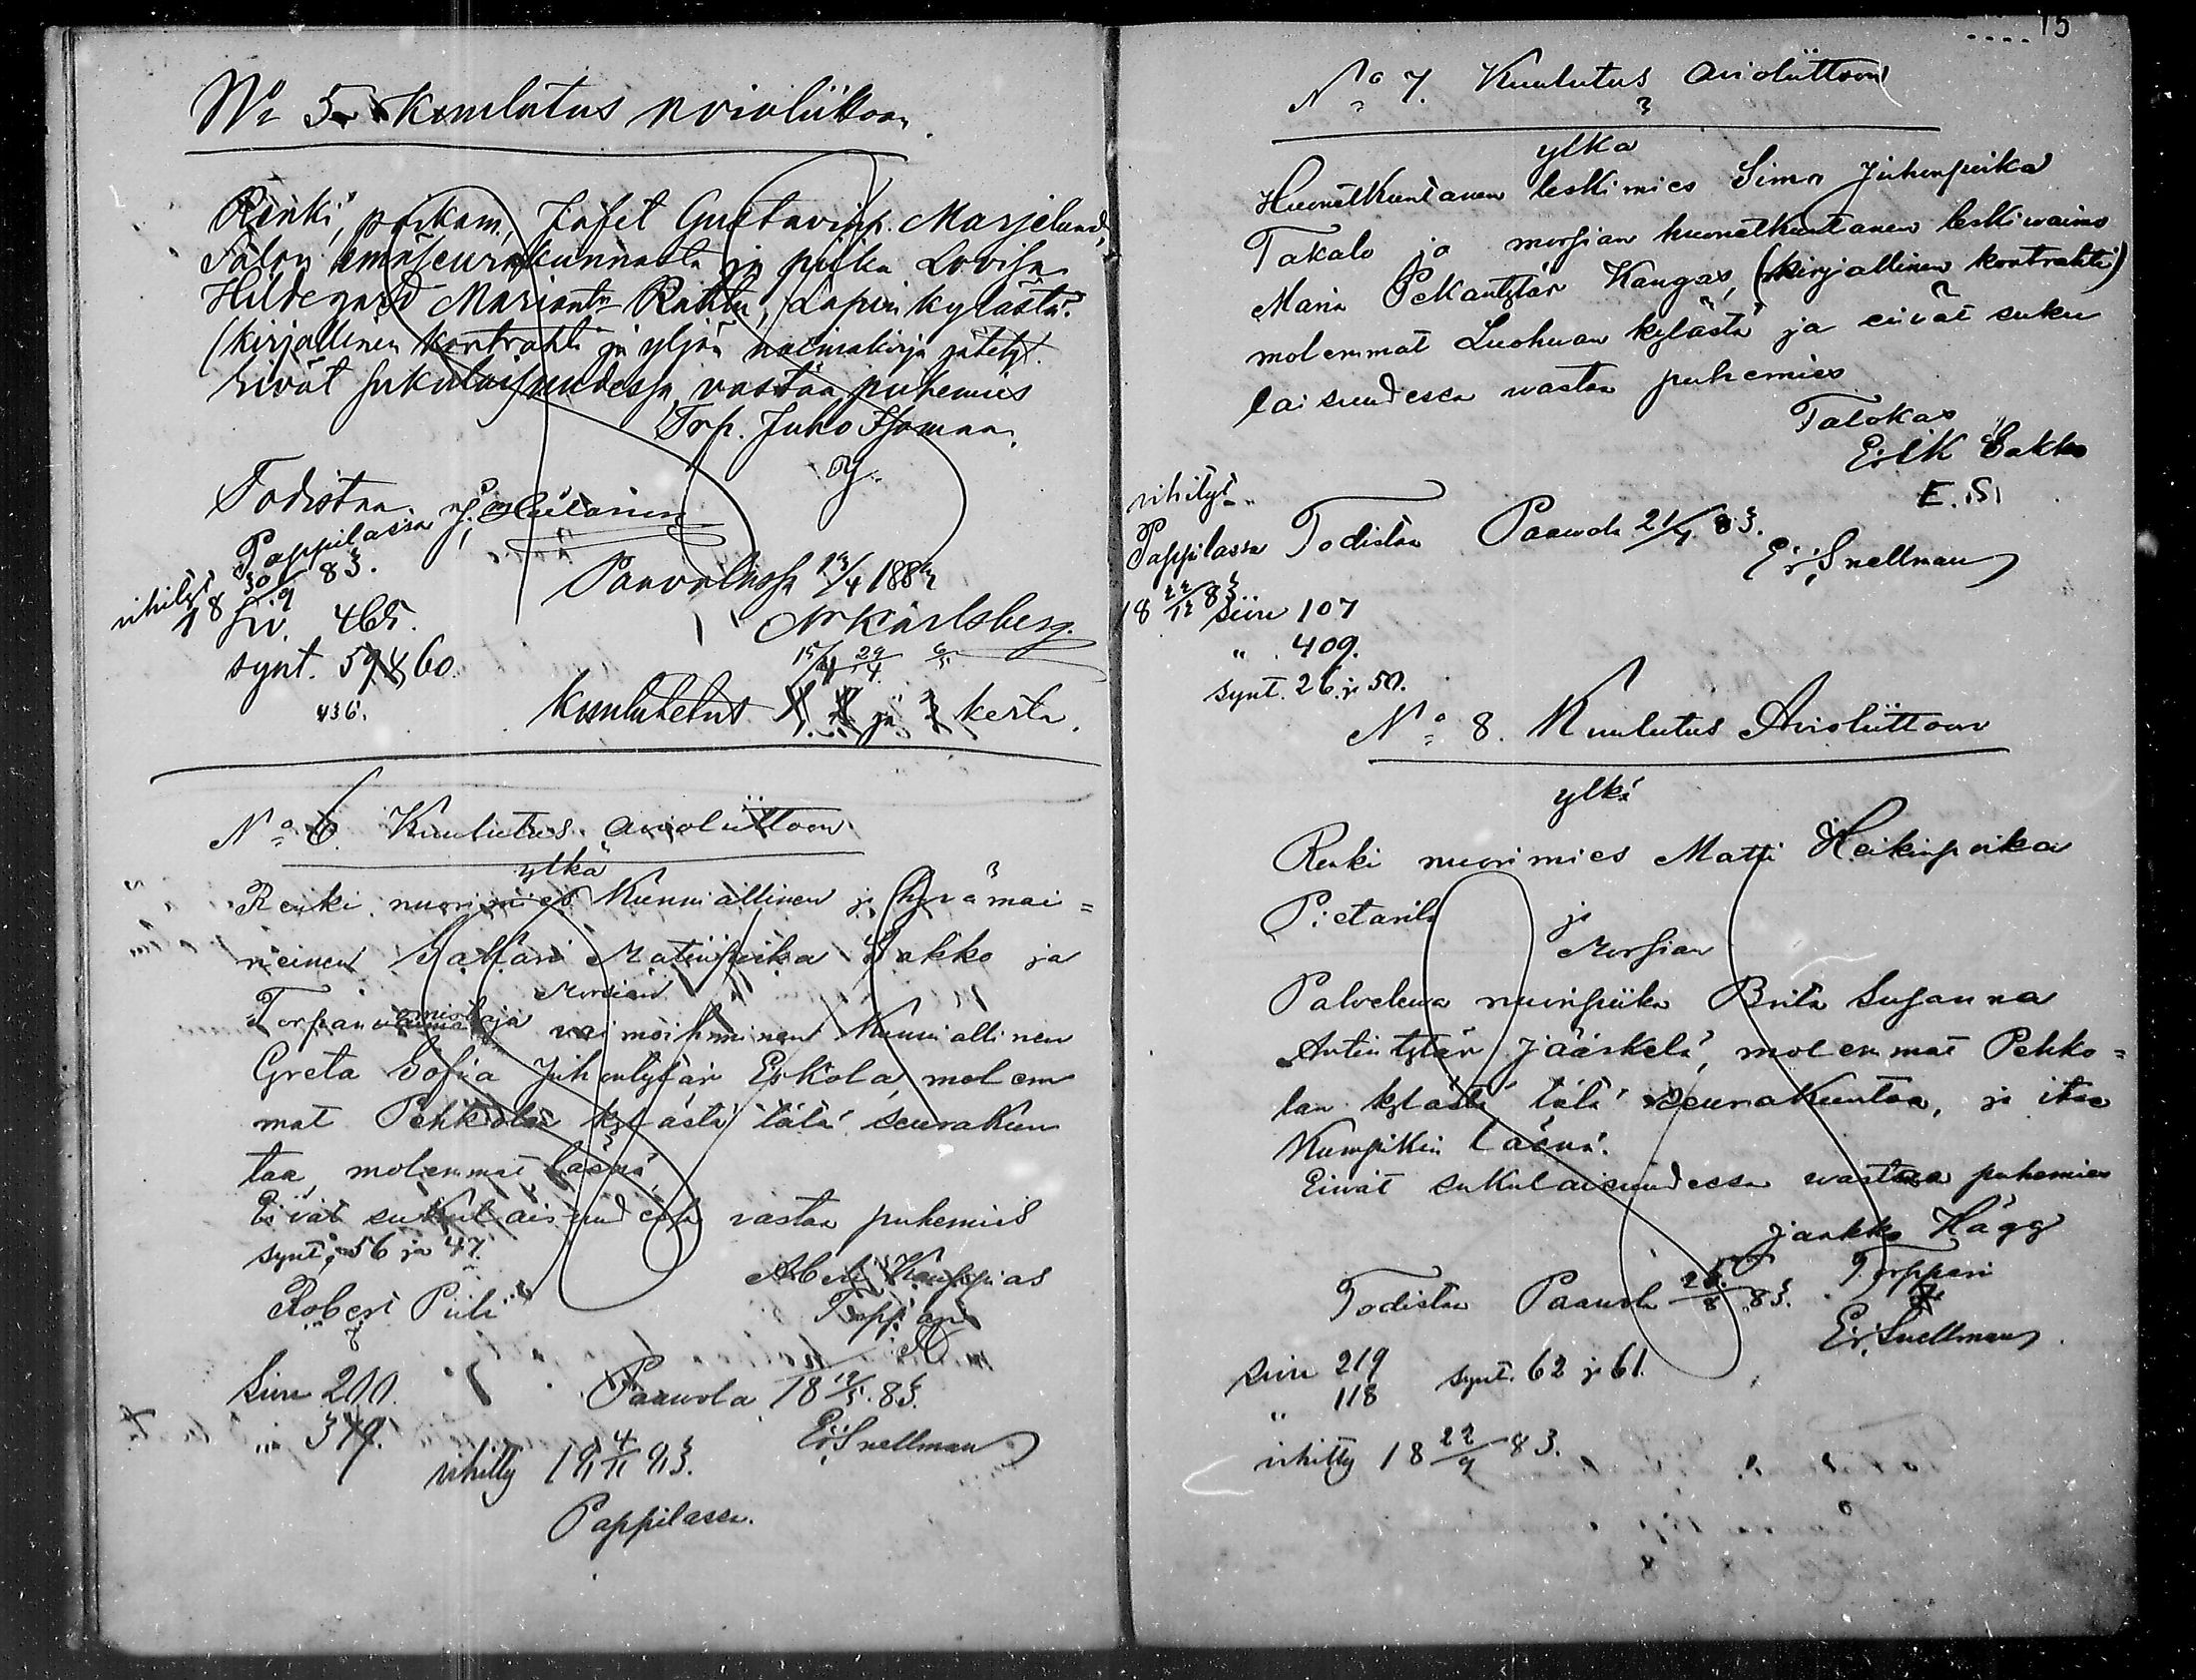 No 5. Kuulutus avioliittoon.
Renki, poikam. Jafet Gustavinp. Marjelund,
Salon emäseurakunnasta ja piika Lovisa
Hildegard Mariantr Rahtu, Lapin kylästä.
(kirjallinen kontrahti ja yljän naimakirja jätetyt.
Eivät sukulaisuudessa, vastaa puhemies
Trp. Juho Isomaa.
Todistaa
Pappilassa
vihityt 18 30/9 83.
Paavolassa 13/4 1883
N Karlsberg.
siv. 465.
synt. 59 60.
436.
15/4 29/4 6/5
Kuulutetus 1 2 ja 3 kerta.
No 6. Kuulutus avioliittoon
ylkä
Renki nuorimies Kunniallinen ja hyvämai=
neinen Matinpoika Sakko ja
Morsian
Torpan vaimoihminen Kunniallinen
Greta Sofia Juhontytär Eskola, molem
mat Pehkolan kylästä tätä seurakun
taa, molemmat läsnä,
Eivät sukulaisuudessa vastaa puhemies
synt. 56 ja 47.
Abel Kauppias
Robert Piili
Sivu 200.
" 349.
Paavola 18 12/5 83.
Er. Snellman
vihitty 18 4/11 83.
Pappilassa.
15
No 7. Kuulutus avioliittoon
ylkä
Huonetkuntanen leskimies Simo Juhonpoika
Takalo ja morsian huonetkuntanen leskivaimo
Maria Pekantytär Kangas, (kirjallinen kontrahti)
molemmat Luohuan kylästä ja eivät suku
laisuudessa vastaa puhemies
Talokas
Erik Sakko
E. S.
vihityt
Pappilassa Todistaa Paavola 21/7 83.
Er. Snellman
18 22/12 83
sivu 107
" 409.
synt. 26. ja 50.
No 8. Kuulutus Avioliittoon
ylkä
Renki nuorimies Matti Heikinpoika
Pietarila ja
Morsian
Palveleva nuoripiika Brita Susanna
Antintytär Jääskelä, molemmat Pehko=
lan kylästä tätä seurakuntaa, ja itse
Kumpikin läsnä.
Eivät sukulaisuudessa vastaa puhemies
Jaakko Hägg
Torppari
Todistaa Paavola 26/8 83.
Er. Snellman
sivu 219
" 118
synt. 62 ja 61.
vihitty 18 22/9 83.